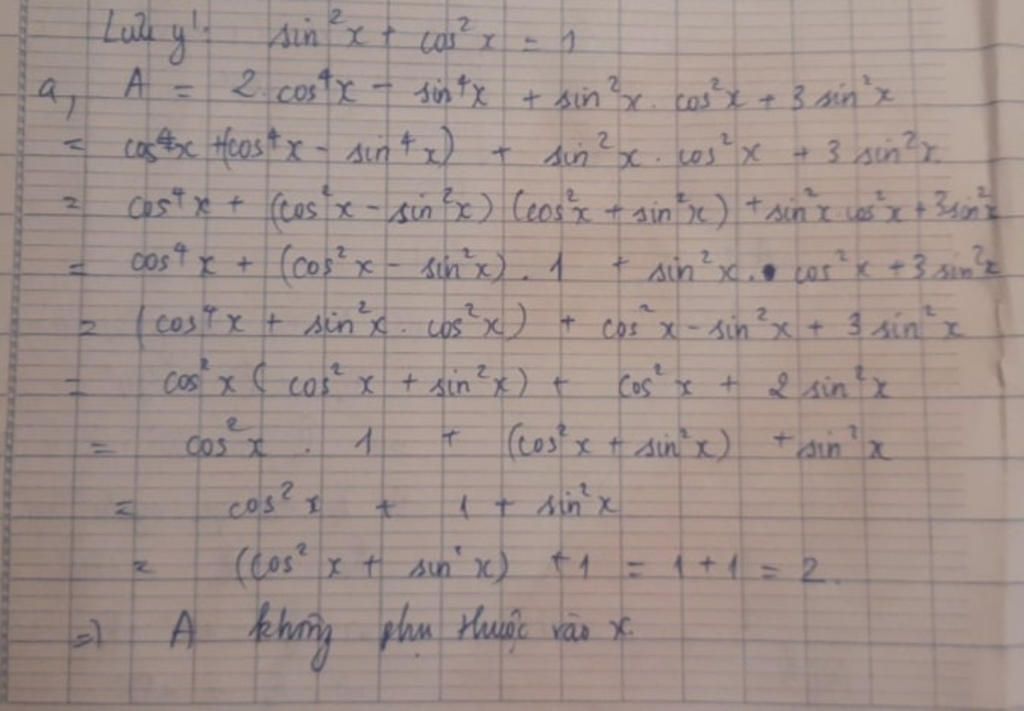 Lưu ý: sin²x + cos²x = 1
a, A = 2 cos⁴x - sin⁴x + sin²x. cos²x + 3 sin²x
= cos⁴x + (cos⁴x - sin⁴x) + sin²x . cos²x + 3 sin²x
= cos⁴x + (cos²x - sin²x) (cos²x + sin²x) + sin²x cos²x + 3sin²x
= cos⁴x + (cos²x - sin²x) . 1 + sin²x . cos²x + 3 sin²x
= (cos⁴x + sin²x . cos²x) + cos²x - sin²x + 3 sin²x
= cos²x ( cos²x + sin²x) + cos²x + 2 sin²x
= cos²x . 1 + (cos²x + sin²x) + sin²x
= cos²x + 1 + sin²x
= (cos²x + sin²x) + 1 = 1 + 1 = 2.
=> A không phụ thuộc vào x.